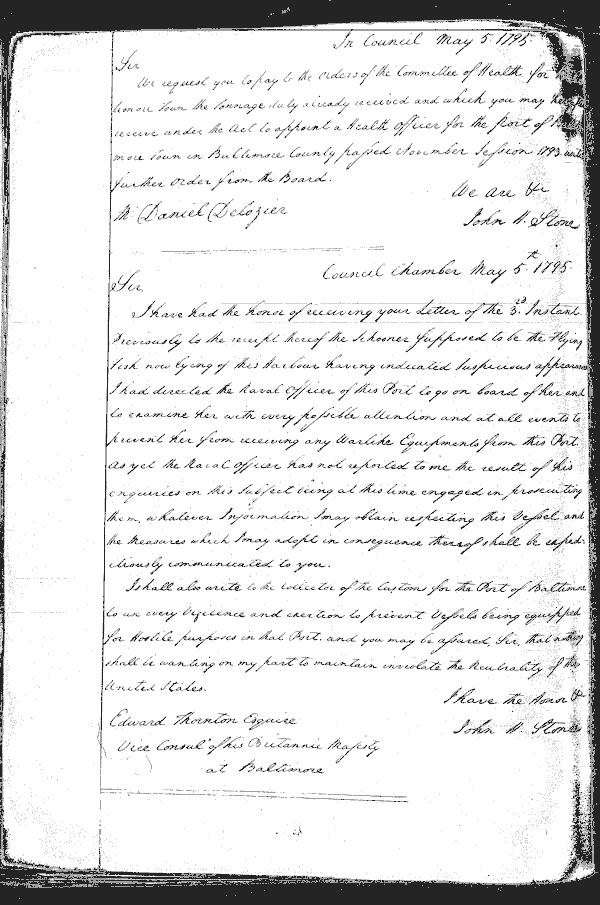 In Council May 5. 1795.
Sir
We request you to pay to the Orders of the Committee of Health for
timore Town the Tonnage duty already received and which you may
receive under the Act to appoint a Health Officer for the Port of
more Town in Baltimore County passed November Session 1793 until
further Order from the Board.
We are &c
Mr Daniel Delozier
John H. Stone
Council Chamber May 5th 1795.
Sir
I have had the honor of receiving your Letter of the 3d Instant
Previously to the receipt thereof the Schooner Supposed to be the Flying
Fish now lying of this Harbour having indicated Suspicious appearances
I had directed the Naval Officer of this Port to go on board of her and
to examine her with every possible attention and at all events to
prevent her from receiving any Warlike Equipments from this Port.
As yet the Naval Officer has not reported to me the result of his
enquiries on this Subject being at this time engaged in prosecuting
them, whatever Information I may obtain respecting this Vessel and
the Measures which I may adopt in consequence thereof shall be exped-
itiously communicated to you.
I shall also write to the Collector of the Customs for the Port of Baltimore
to use every Vigilence and exertion to prevent Vessels being equipped
for Hostile purposes in that Port. and you may be assured, Sir, that nothing
shall be wanting on my part to maintain inviolate the Neutrality of the
United States.
I have the Honor &c
Edward Thornton Esquire
John H. Stone
Vice Consul of his Britannic Majesty
at Baltimore